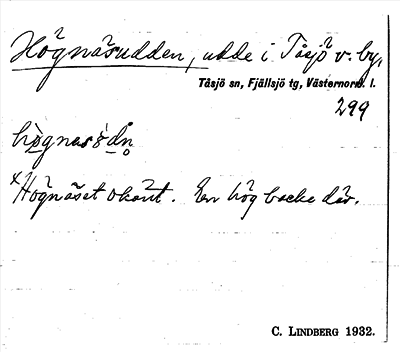 Högnäsudden, udde i Tåsjö v. by,
Tåsjö sn, Fjällsjö tg, Västernorrl. l.
299
Högnäset okänt. En hög backe där.
C. LINDBERG 1932.